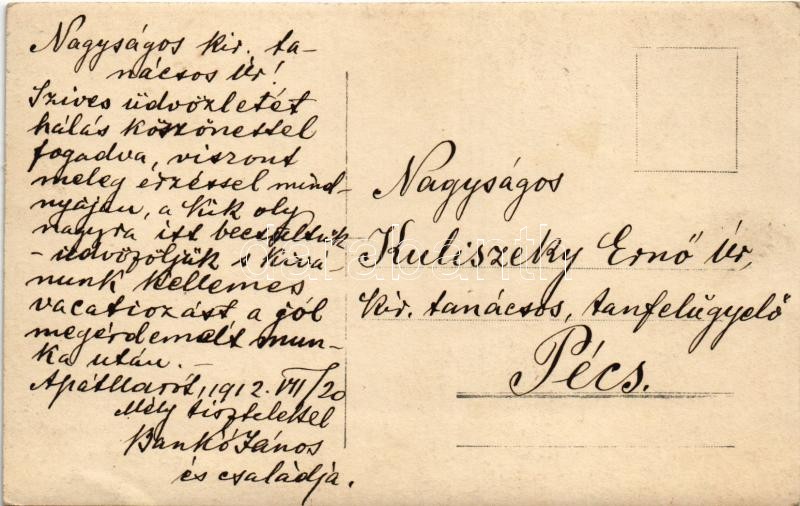 Nagyságos kir. ta-
nácsos Úr!
Szives üdvözletét
hálás köszönettel
fogadva, viszont
meleg érzéssel mind-
nyájan, a kik oly
nagyra itt becsültük
- üdvözöljük s kivá-
nunk kellemes
vacatiozást a jól
megérdemelt mun-
ka után. -
Apátharót, 1912. VII/20
Mély tisztelettel
Bankó János
és családja.
Nagyságos
Kuliszeky Ernő Úr,
kir. tanácsos, tanfelügyelő
Pécs.
darabanth